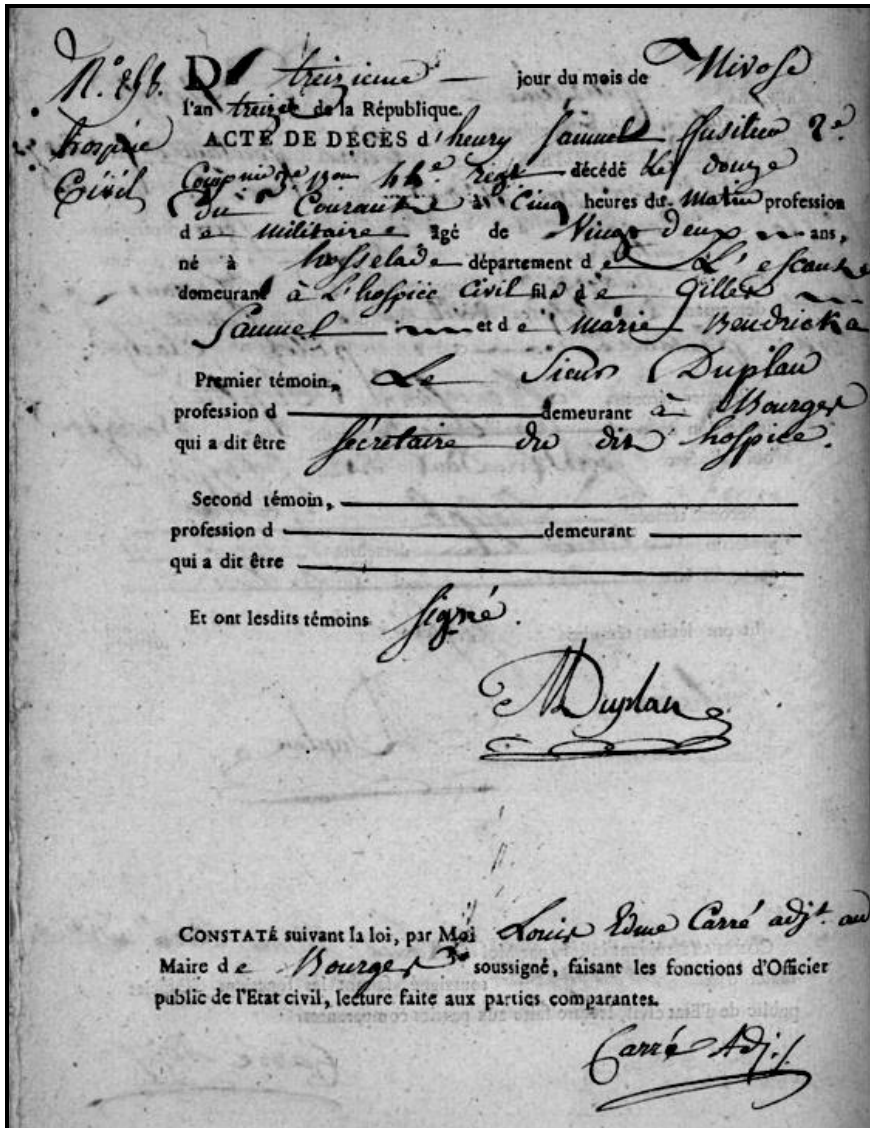 N.º
hospice
Civil
Du treizieme jour du mois de Nivose
l'an treize de la République.
ACTE DE DÉCÈS d'henry Samuel fusilier 2e.
Compnie 3e. Bon 44e. regt décédé Le douze
Du Courant à Cinq heures du matin profession
de militaire agé de Vingt deux ans,
né à hosselade département de L'escaut
demeurant à L'hospice Civil fils de Gilles
Samuel et de Marie Bendrick
Premier témoin, Le Sieur Duplan
profession d demeurant à Bourges
qui a dit être Sécretaire du dit hospice.
Second témoin,
profession d demeurant
qui a dit être
Et ont lesdits témoins signé.
Duplan
CONSTATÉ suivant la loi, par Moi Louis Edme Carré adjt. au
Maire de Bourges soussigné, faisant les fonctions d'Officier
public de l'Etat civil, lecture faite aux parties comparantes.
Carré Adj.t